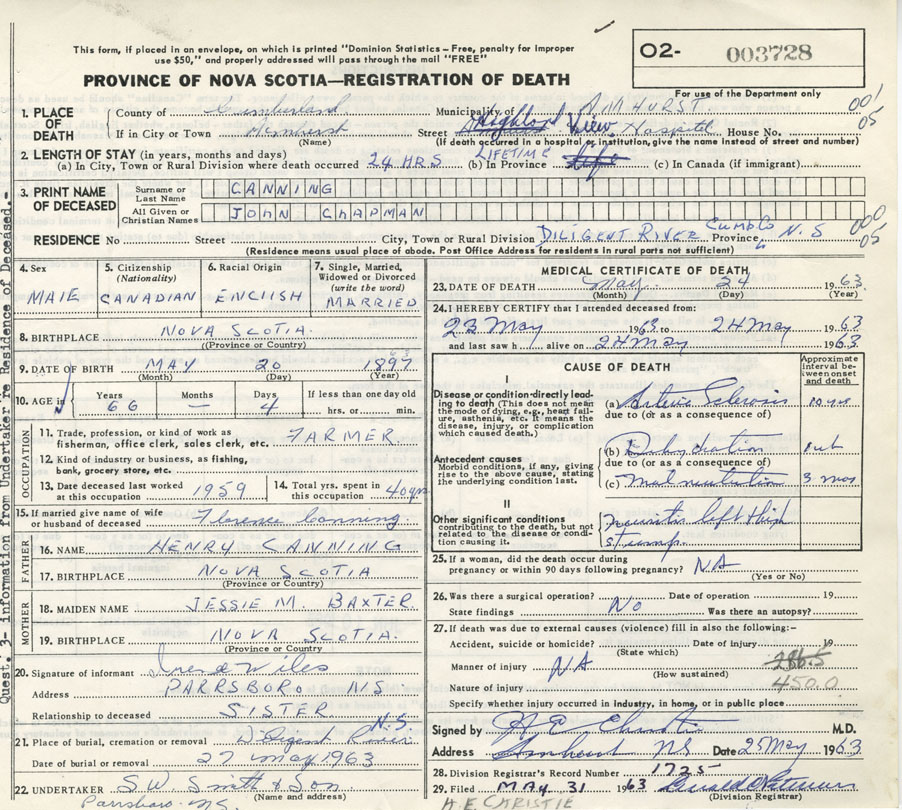 This form, if placed in an envelope, on which is printed "Dominion Statistics – Free, penalty for improper
use $50," and properly addressed will pass through the mail "FREE"
O2- 003728
PROVINCE OF NOVA SCOTIA—REGISTRATION OF DEATH
For use of the Department only
001
05
1. PLACE OF DEATH
County of Cumberland Municipality of AMHURST
If in City or Town Amherst Street Highland View Hospital House No.
(Name) (If death occurred in a hospital or institution, give the name instead of street and number)
2. LENGTH OF STAY (in years, months and days)
(a) In City, Town or Rural Division where death occurred 24 HRS (b) In Province LIFETIME (c) In Canada (if immigrant)
3. PRINT NAME OF DECEASED
Surname or Last Name CANNING
All Given or Christian Names JOHN CHAPMAN
RESIDENCE No Street City, Town or Rural Division DILIGENT RIVER Cumb Co Province N.S
000
05
(Residence means usual place of abode. Post Office Address for residents in rural parts not sufficient)
4. Sex MALE
5. Citizenship (Nationality) CANADIAN
6. Racial Origin ENGLISH
7. Single, Married, Widowed or Divorced (write the word) MARRIED
8. BIRTHPLACE NOVA SCOTIA
(Province or Country)
9. DATE OF BIRTH MAY 20 1897
(Month) (Day) (Year)
10. AGE in Years 66 Months — Days 4 If less than one day old hrs. or min.
OCCUPATION
11. Trade, profession, or kind of work as
fisherman, office clerk, sales clerk, etc. FARMER
12. Kind of industry or business, as fishing,
bank, grocery store, etc.
13. Date deceased last worked
at this occupation 1959
14. Total yrs. spent in
this occupation 40 yrs
15. If married give name of wife
or husband of deceased Florence Canning
FATHER
16. NAME HENRY CANNING
17. BIRTHPLACE NOVA SCOTIA
(Province or Country)
MOTHER
18. MAIDEN NAME JESSIE M. BAXTER
19. BIRTHPLACE NOVA SCOTIA
(Province or Country)
20. Signature of informant Wiles
Address PARRSBORO NS
Relationship to deceased SISTER
21. Place of burial, cremation or removal Diligent River N.S.
Date of burial or removal 27 May 1963
22. UNDERTAKER S.W. Smith & Son
(Name and address)
Parrsboro N.S.
MEDICAL CERTIFICATE OF DEATH
23. DATE OF DEATH May 24 1963
(Month) (Day) (Year)
24. I HEREBY CERTIFY that I attended deceased from:
23 May 1963 to 24 May 1963
and last saw h... alive on 24 May 1963
CAUSE OF DEATH
Approximate interval between onset and death
I
Disease or condition directly leading to death (This does not mean the mode of dying, e.g., heart failure, asthenia, etc. It means the disease, injury, or complication which caused death.)
(a) Arterio Sclerosis 10 yrs
due to (or as a consequence of)
Antecedent causes
Morbid conditions, if any, giving rise to the above cause, stating the underlying condition last.
(b) Dehydration
due to (or as a consequence of)
(c) Malnutrition 3 mos
II
Other significant conditions
contributing to the death, but not related to the disease or condition causing it.
left thigh
stump
25. If a woman, did the death occur during
pregnancy or within 90 days following pregnancy? NA
(Yes or No)
26. Was there a surgical operation? Date of operation 19
State findings No Was there an autopsy?
27. If death was due to external causes (violence) fill in also the following:–
Accident, suicide or homicide? Date of injury 19
(State which)
Manner of injury NA
(How sustained)
286.5
Nature of injury 450.0
Specify whether injury occurred in industry, in home, or in public place
Signed by H E Christie M.D.
Address Amherst NS Date 25 May 1963
28. Division Registrar's Record Number 1725
29. Filed MAY 31 1963
(Division Registrar)
H.E. CHRISTIE
Quest. 3- information from Undertaker re Residence of Deceased.-